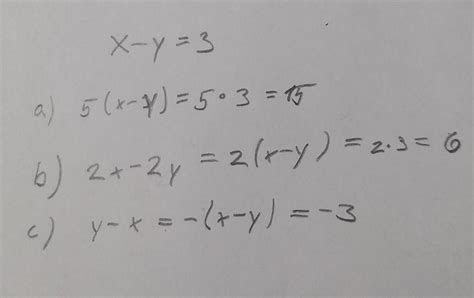 x-y=3
a) 5(x-y)=5•3=15
b) 2x-2y=2(x-y)=2•3=6
c) y-x=-(x-y)=-3